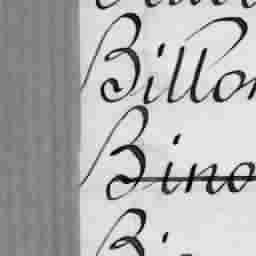 Billon
Bino
Bi